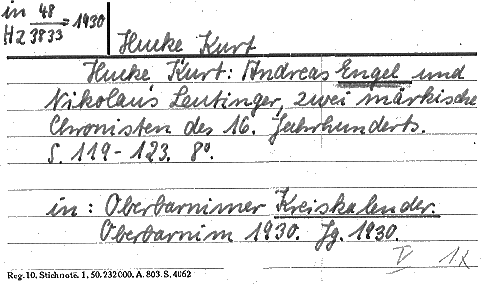 in 48/HZ 3833 = 1930
Hucke Kurt
Hucke Kurt: Andreas Engel und
Nikolaus Leutinger, zwei märkische
Chronisten des 16. Jahrhunderts.
S. 119-123. 8°.
in: Oberbarnimer Kreiskalender.
Oberbarnim 1930. Jg. 1930.
V 1x
Reg. 10. Stichnote. 1, 50. 232000. A. 803. S. 4062